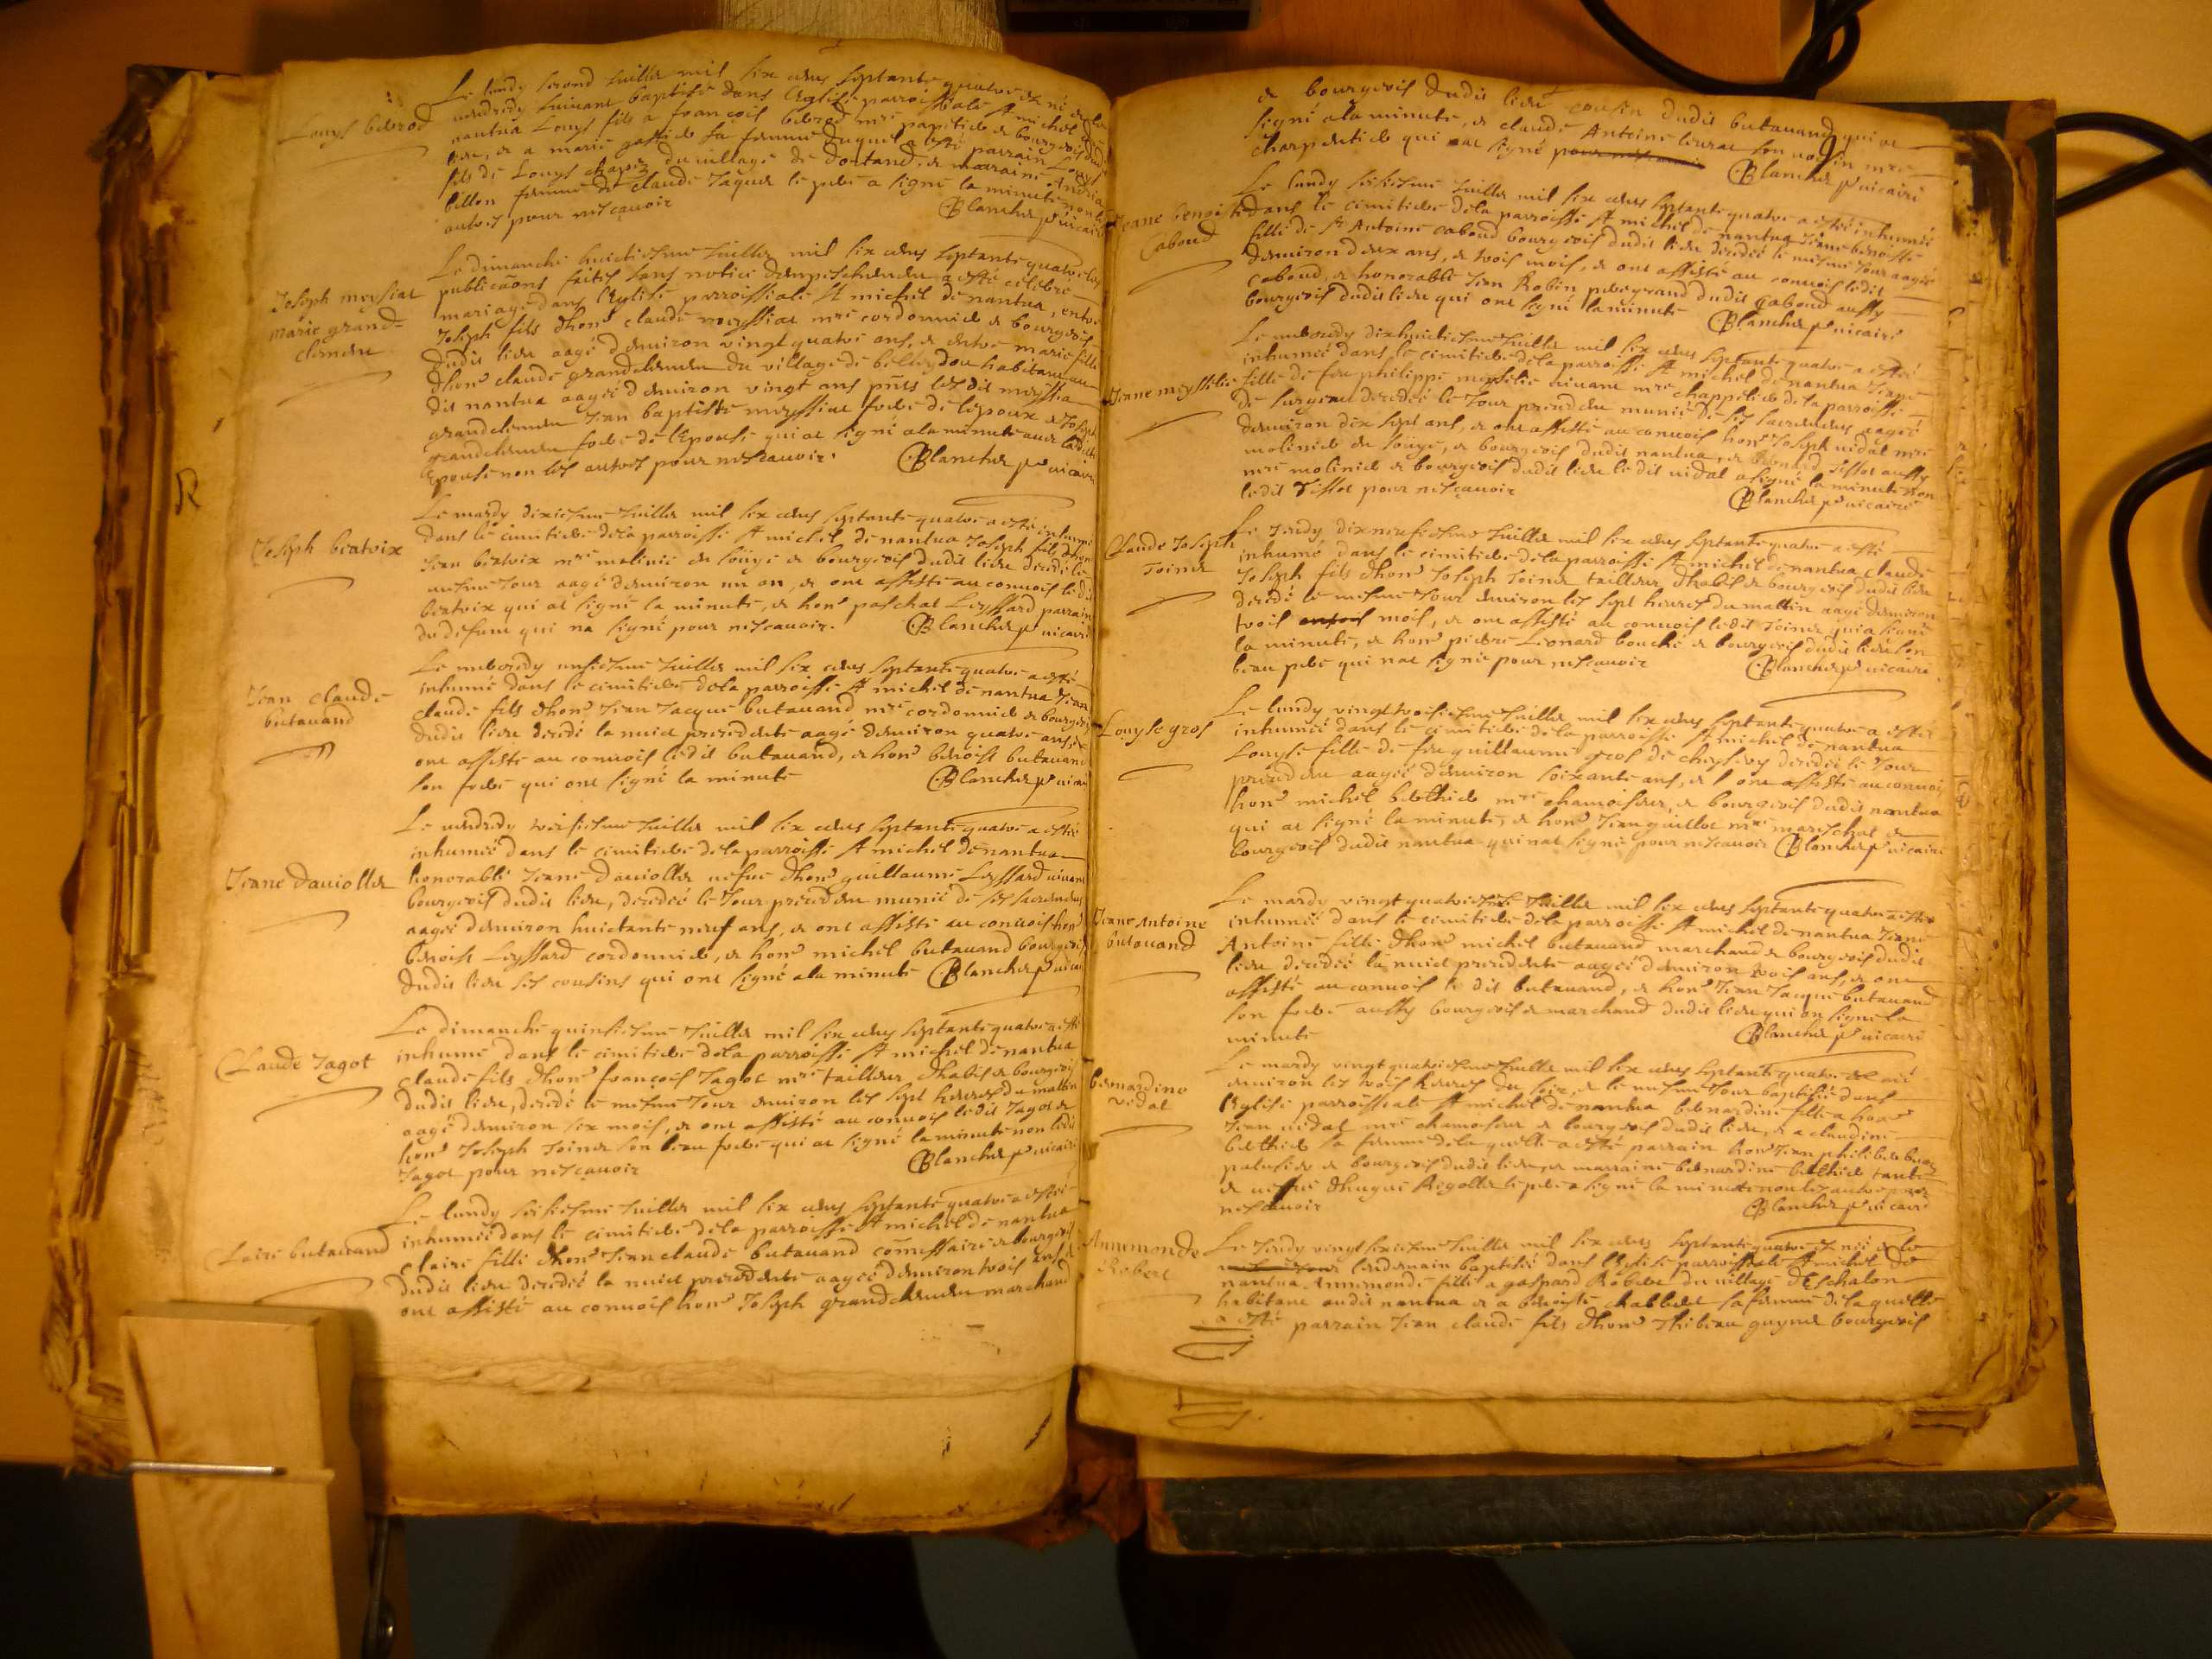 Louys bebrod
Le lundy second Juillet mil six cens septante quatre est né et le
vendredy suivant baptisé dans l'Eglise parroissiale St michel de
nantua Louys fils a françois bebrod mre papetier et bourgeois dudit
lieu, et a marie sa femme duquel a esté parrain Louys
fils de Louys chapez du village de dortand, et marraine Andrea
billon femme de claude Jaquet le pere a signé la minute non les
autres pour nesçavoir Blanchet p vicaire
Joseph meyssiat
marie grand=
clement
Le dimanche huictiesme Juillet mil six cens septante quatre les
publicaõns faites sans notice d'empeschement a esté celebré
mariage dans l'Eglise parroissiale St michel de nantua, entre
Joseph fils d'hone claude meyssiat mre cordonnier et bourgeois
dudit lieu aagé d'environ vingt quatre ans, et entre marie fille
d'hone claude grandclement du village de belleydou habitant au
dit nantua aagée d'environ vingt ans pñts lesdits meyssia
grandclement Jean baptiste meyssiat frere de l'epoux et Joseph
grandclement frere de l'Epouse qui at signé a la minute avec ledit
Epouse non les autres pour nesçavoir. Blanchet p vicaire
Joseph bertoix
Le mardy dixiesme Juillet mil six cens septante quatre a esté inhumé
dans le cimitiere de la parroisse St michel de nantua Joseph fils d'hone
Jean bertoix mre molinier en soüye et bourgeois dudit lieu decedé le
mesme Jour aagé d'environ un an, et ont assisté au convois ledit
bertoix qui at signé la minute, et hone paschal Leyssard parrain
du defunt qui na signé pour nesçavoir. Blanchet p vicaire
Jean claude
butavand
Le mercredy unsiesme Juillet mil six cens septante quatre a esté
inhumé dans le cimitiere de la parroisse St michel de nantua Jean
claude fils d'hone Jean Jacque butavand mre cordonnier et bourgeois
dudit lieu decedé la nuict precedente aagé d'environ quatre ans, et
ont assisté au convois ledit butavand, et hone benoist butavand
son frere qui ont signé la minute Blanchet p vicaire
Jeanne daviollet
Le vendredy treisiesme Juillet mil six cens septante quatre a esté
inhumée dans le cimitiere de la parroisse St michel de nantua
honorable Jeanne daviollet vefve d'hone guillaume Leyssard vivant
bourgeois dudit lieu, decedée le Jour precedent munie de ses sacremens
aagée d'environ huictante neuf ans, et ont assisté au convois hone
benoist Leyssard cordonnier, et hone michel butavand bourgeois
dudit lieu ses cousins qui ont signé a la minute Blanchet p vicaire
Claude Jagot
Le dimanche quinsiesme Juillet mil six cens septante quatre a esté
inhumé dans le cimitiere de la parroisse St michel de nantua
claude fils d'hone françois Jagot mre tailleur d'habis et bourgeois
dudit lieu, decedé le mesme Jour environ les sept heures du mattin
aagé d'environ six mois, et ont assisté au convois ledit Jagot et
hone Joseph Joinet son beau frere qui at signé la minute non ledit
Jagot pour nesçavoir Blanchet p vicaire
Claire butavand
Le lundy seisiesme Juillet mil six cens septante quatre a esté
inhumée dans le cimitiere de la parroisse St michel de nantua
claire fille d'hone Jean claude butavand com̃issaire et bourgeois
dudit lieu decedée la nuict precedente aagée d'environ trois ans, et
ont assisté au convois hone Joseph grandclement marchand
et bourgeois dudit lieu cousin dudit butavand qui at
signé a la minute, et claude Antoine livrat son voisin mre
charpentier qui nat signé Blanchet p vicaire
Jeanne benoiste
Caboud
Le lundy seisiesme Juillet mil six cens septante quatre a esté inhumée
dans le cimitiere de la parroisse St michel de nantua Jeanne benoiste
fille de sr Antoine caboud bourgeois dudit lieu decedée le mesme Jour aagée
d'environ deux ans, et trois mois, et ont assisté au convois ledit
Caboud, et honorable Jean Robin pere grand dudit Caboud aussy
bourgeois dudit lieu qui ont signé la minute Blanchet p vicaire
Jeanne meysselie
Le mercredy dixhuictiesme Juillet mil six cens septante quatre a esté
inhumée dans le cimitiere de la parroisse St michel de nantua Jeanne
fille de feu philippe meyselie vivant mre chappelier de la parroisse
de surgeau decedée le Jour precedent munie de ses sacremens aagée
d'environ dix sept ans, et ont assisté au convois hone Joseph vidal mre
molinier en soüye, et bourgeois dudit nantua, et bernard Jissot aussy
mre molinier et bourgeois dudit lieu ledit vidal a signé la minute non
ledit Jissot pour nesçavoir Blanchet p vicaire
Claude Joseph
Joinet
Le Jeudy dixneufiesme Juillet mil six cens septante quatre a esté
inhumé dans le cimitiere de la parroisse St michel de nantua claude
Joseph fils d'hone Joseph Joinet tailleur d'habis et bourgeois dudit lieu
decedé le mesme Jour environ les sept heures du mattin aagé d'environ
trois mois, et ont assisté au convois ledit Joinet qui a signé
la minute, et hone pierre Leonard bouché et bourgeois dudit lieu son
beau pere qui nat signé pour nesçavoir Blanchet p vicaire
Louyse gros
Le lundy vingt troisiesme Juillet mil six cens septante quatre a esté
inhumée dans le cimitiere de la parroisse St michel de nantua
Louyse fille de feu guillaume gros de cheysery decedée le Jour
precedent aagée d'environ soixante ans, et ont assisté au convois
hone michel berthier mre chamoiseur, et bourgeois dudit nantua
qui at signé la minute, et hone Jean guillot mre mareschal et
bourgeois dudit nantua qui nat signé pour nesçavoir Blanchet p vicaire
Jeanne Antoine
butavand
Le mardy vingt quatriesme Juillet mil six cens septante quatre a esté
inhumée dans le cimitiere de la parroisse St michel de nantua Jeanne
Antoine fille d'hone michel butavand marchand et bourgeois dudit
lieu decedée la nuict precedente aagée d'environ trois ans, et ont
assisté au convois le dit butavand, et hone Jean Jacque butavand
son frere aussy bourgeois et marchand dudit lieu qui on signé la
minute Blanchet p vicaire
bernardine
vidal
Le mardy vingt quatriesme Juillet mil six cens septante quatre est née
environ les trois heures du soir, et le mesme Jour baptisée dans
l'Eglise parroissiale St michel de nantua bernardine fille a hone
Jean vidal mre chamoseur et bourgeois dudit lieu, et a claudine
berthier sa femme de laquelle a esté parrain hone Jean philibert
et bourgeois dudit lieu, et marraine bernardine berthier tante
et vefve d'hugue Rigollet le pere a signé la minute non les autres pour
nesçavoir Blanchet p vicaire
Annemonde
Robert
Le Jeudy vingt sixiesme Juillet mil six cens septante quatre est née et le
lendemain baptisée dans l'Eglise parroissiale St michel de
nantua Annemonde fille a gaspard Robert du village d'Eschalon
habitant audit nantua et a benoiste chabbert sa femme de laquelle
a esté parrain Jean claude fils d'hone Thibeau guynet bourgeois